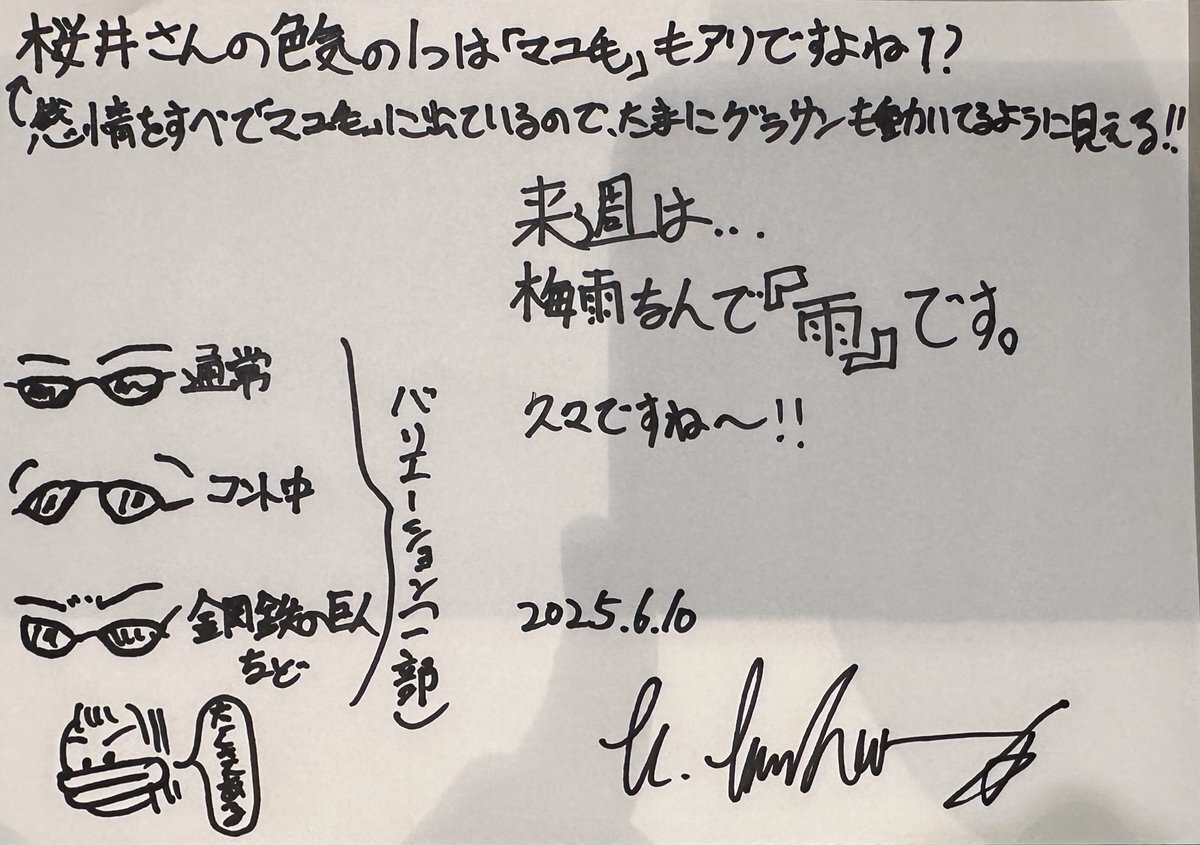 桜井さんの色気の1つは「マユ毛」もアリですよね!?
感情をすべて「マユ毛」に出ているので、たまにグラサンも動いてるように見える!!
来週は...
梅雨なんで『雨』です。
久々ですね〜!!
通常
コント中
鋼鉄の巨人
など
バリエーション(一部)
2025.6.10